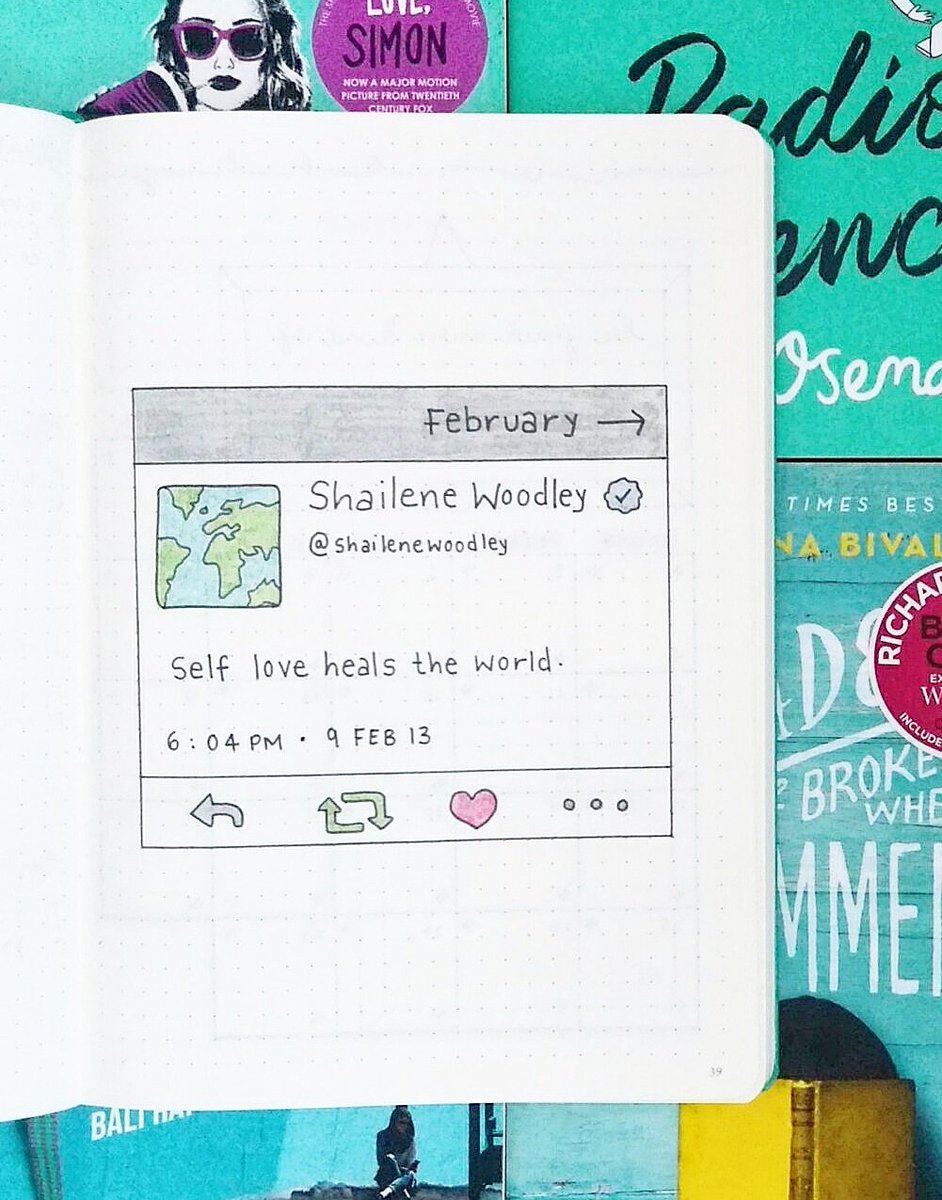 LOVE,
SIMON
NOW A MAJOR MOTION
PICTURE FROM TWENTIETH
CENTURY FOX
Radio
Osema
February →
Shailene Woodley
@shailenewoodley
Self love heals the world.
6:04 PM · 9 FEB 13
39
TIMES BES
NA BIVAL
RICHAR
INCLUDE
BROKE
WHE
MMER
BALI HA